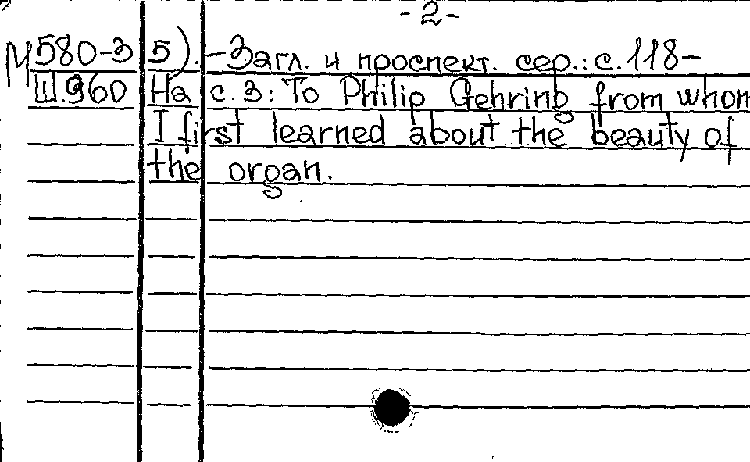 -2-
М580-3 5).-Загл. и проспект. сер.: с. 118-
Ш.960 На с. 3: To Philip Gehring from whom
I first learned about the beauty of
the organ.